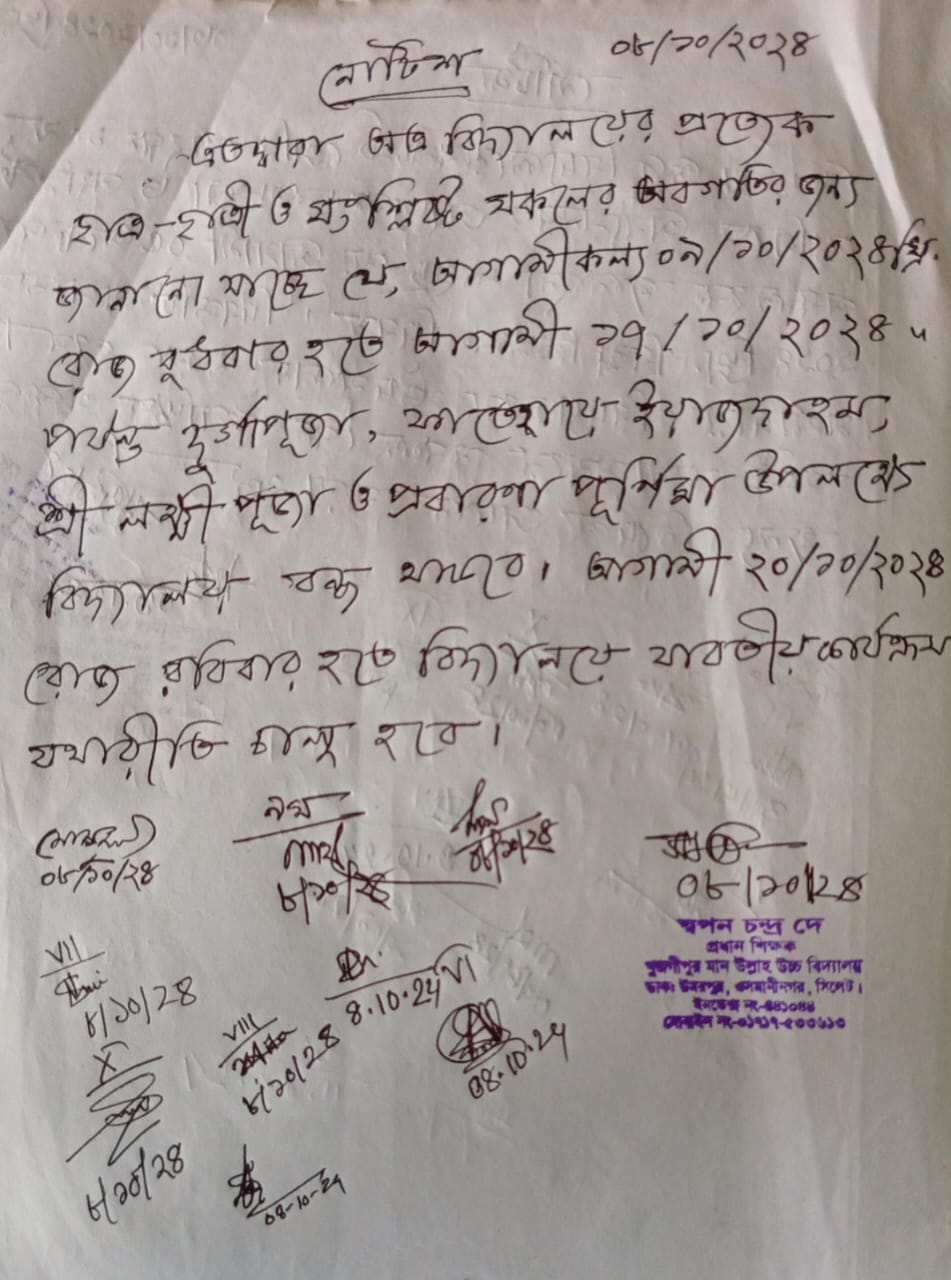 ০৮/১০/২০২৪
নোটিশ
এতদ্বারা অত্র বিদ্যালয়ের প্রত্যেক
ছাত্র-ছাত্রী ও সংশ্লিষ্ট সকলের অবগতির জন্য
জানানো যাচ্ছে যে, আগামীকল্য ০৯/১০/২০২৪খ্রি.
রোজ বুধবার হতে আগামী ১৭/১০/২০২৪
পর্যন্ত দুর্গাপূজা, ফাতেহায়ে ইয়াজদাহম,
শ্রী লক্ষ্মী পূজা ও প্রবারণা পূর্ণিমা উপলক্ষ্যে
বিদ্যালয় বন্ধ থাকবে। আগামী ২০/১০/২০২৪
রোজ রবিবার হতে বিদ্যালয়ে যাবতীয় কার্যক্রম
যথারীতি চালু হবে।
০৮/১০/২৪
নবম
৮/১০/২৪
০৮/১০/২৪
০৮/১০/২৪
স্বপন চন্দ্র দে
প্রধান শিক্ষক
মান উল্লাহ উচ্চ বিদ্যালয়
ডাক: উমরপুর, ওসমানীনগর, সিলেট।
ইনডেক্স নং-
মোবাইল নং-
VII
৮/১০/২৪
VIII
৮/১০/২৪
8.10.24
VI
08.10.24
X
৮/১০/২৪
08-10-24